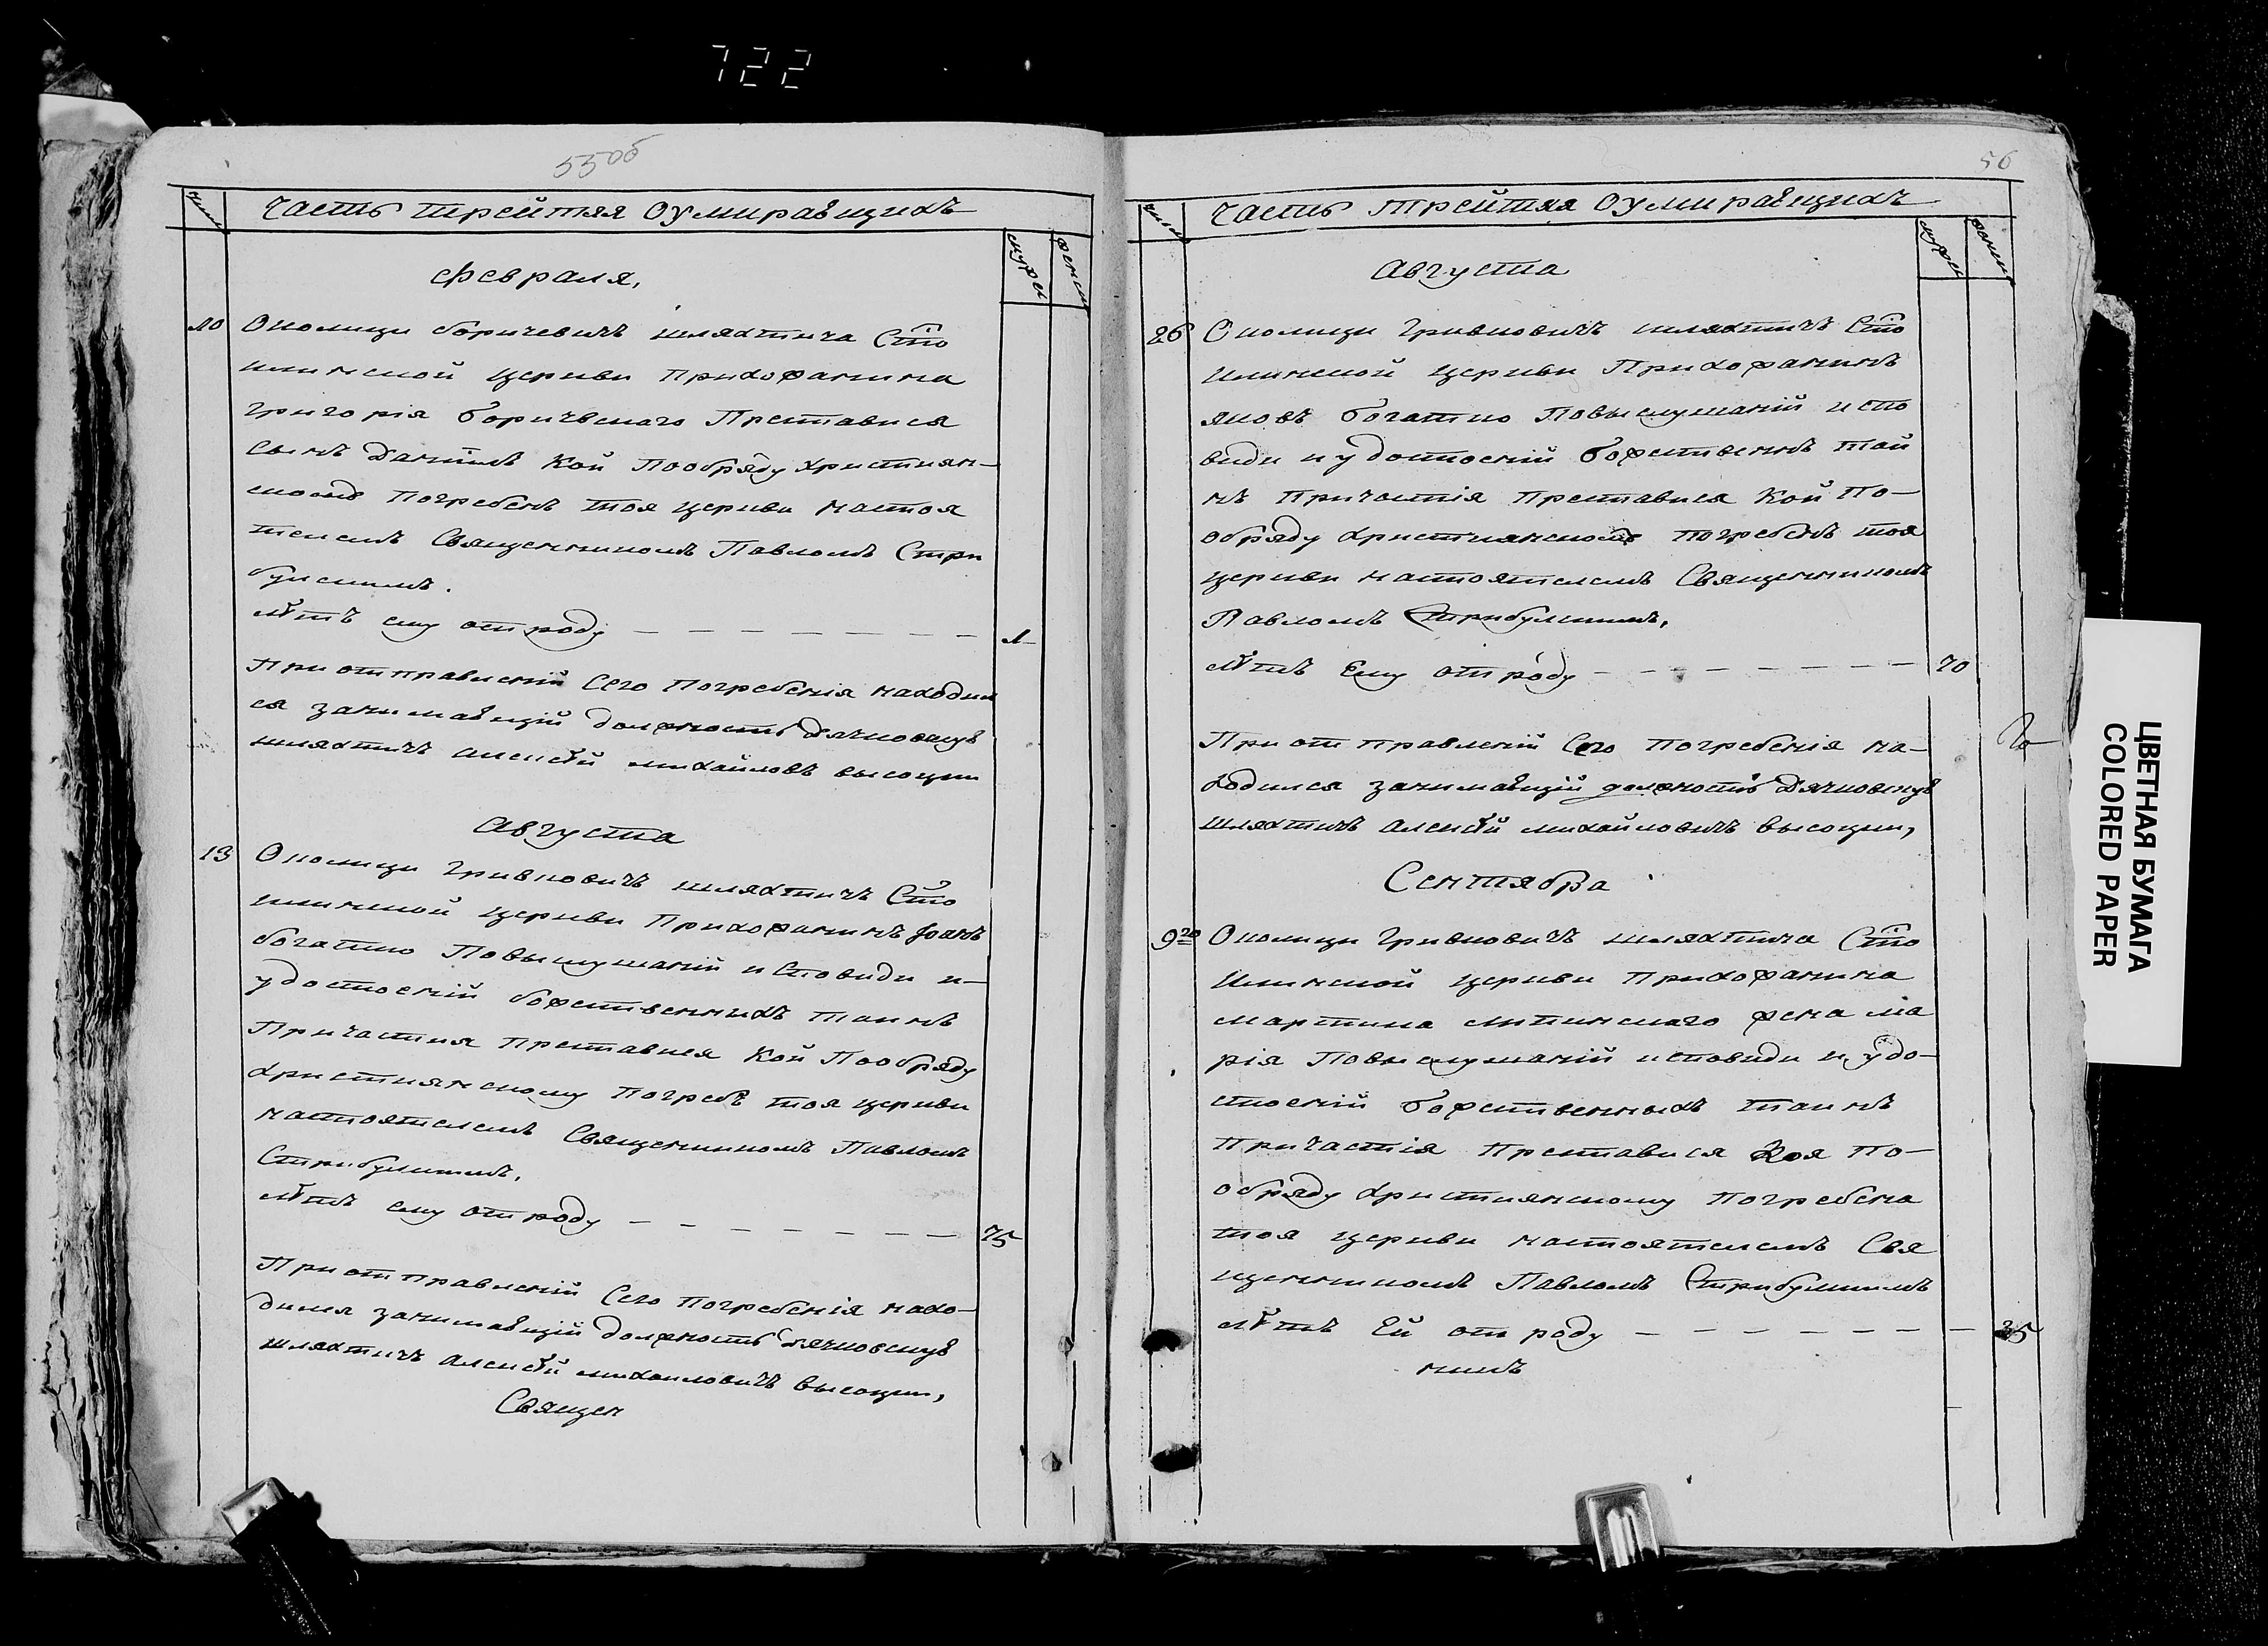 722
55об
Часть трейтяя Оумиравшихъ
число
мужес
женск
Февраля,
10 Околицы боричевичъ шляхтича Сто
илинской церкви Прихожанина
Григорія боричвскаго Преставися
сынъ Даніилъ кой Пообряду християн—
скомъ погребенъ тоя церкви настоя
телемъ Священникомъ Павломъ Стри
булскимъ.
лѣтъ ему отроду — — — — — — — — 1
При отправленіи Сего Погребенія находил
ся занимавшій должность Дячковскую
шляхтичъ алексѣй михайловъ высоцки
Августа
13 Околицы Гривковичъ шляхтичъ Сто
илинской церкви Прихожанинъ Іоанъ
богатко Повыслушаніи исповиди и—
удостоеніи божественныхъ таинъ
Причастия преставися кой Пообряду
християнскому погребъ тоя церкви
настоятелемъ Священникомъ Павломъ
Стрибулскимъ,
лѣтъ ему отроду — — — — — — — 75
При отправленіи Сего погребенія нахо—
дился занимавшій должность дячковскую
шляхтичъ алексѣй михаиловичъ высоцки,
Священ
56
Часть трейтяя Оумиравшихъ
число
мужес
женск
Августа
26 Околицы Гривковичъ шляхтичъ Сто
Илинской церкви Прихожанинъ
яковъ богатко Повыслушаніи испо
види иудостоеніи божественнъ тай
нъ причастія преставися кой по—
обряду християнскомъ погребенъ тоя
церкви настоятелемъ Священникомъ
Павломъ Стрибулскимъ,
лѣтъ Ему отроду — — — — — — — 70
При отправленіи Сего погребенія на—
ходился занимавшій должность Дячковскую
шляхтичъ алексѣй михайловичъ высоцки,
Сентября
9го Околицы Гривковичъ шляхтича Сто
Илинской церкви Прихожанина
мартина литинскаго жена ма
рія Повыслушаніи исповиди и удо—
стоеніи божественныхъ таинъ
причастія преставися Коя по—
обряду християнскому погребена
тоя церкви настоятелемъ Свя
щенникомъ Павломъ Стрибулскимъ
лѣтъ Ей от роду — — — — — — — 35
никъ
ЦВЕТНАЯ БУМАГА
COLORED PAPER